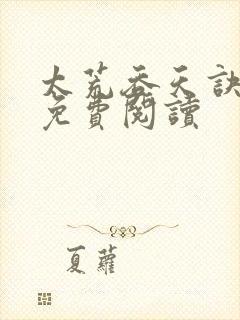 太荒吞天訣
免費閱讀
夏蘿